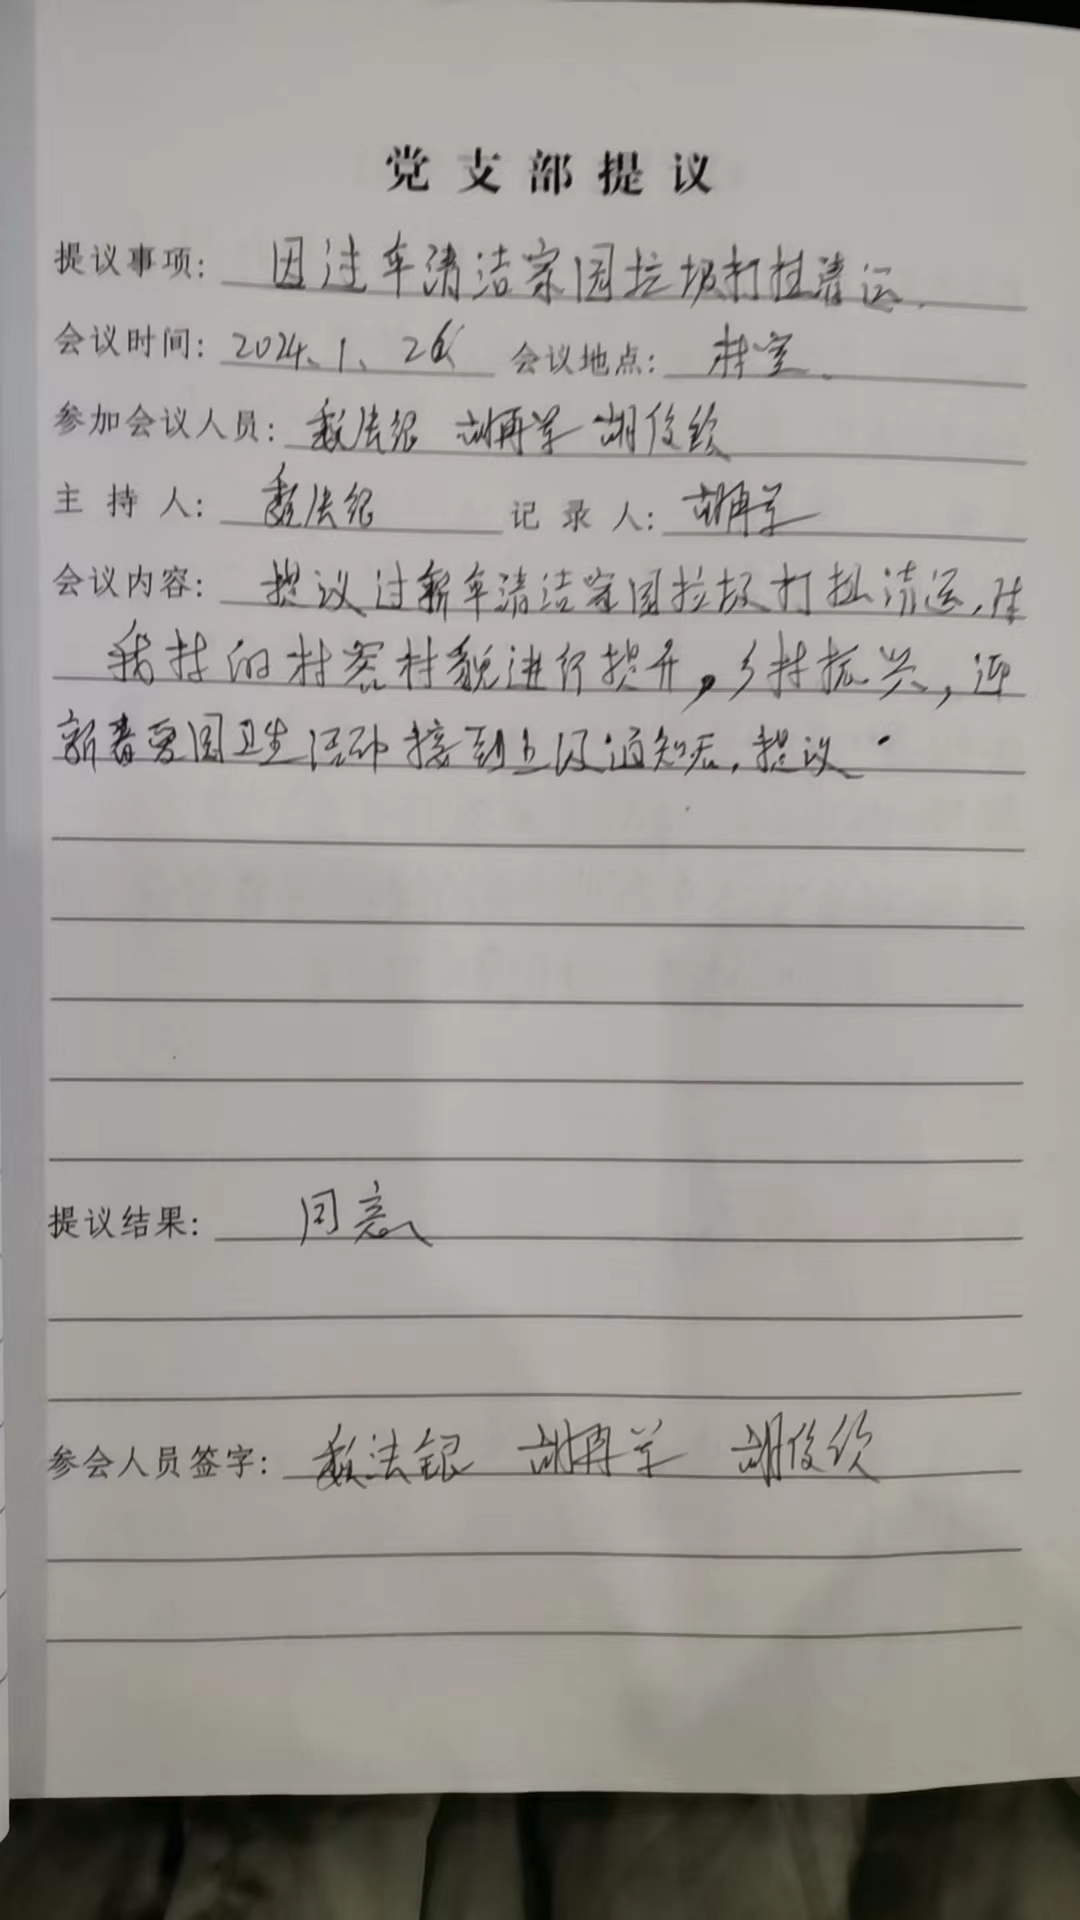 党支部提议
提议事项: 因过年清洁家园垃圾打扫清运.
会议时间: 2024.1.26 会议地点: 村室.
参加会议人员: 法银 胡再学 胡俊钦
主持人: 法银 记录人: 胡再学
会议内容: 提议过新年清洁家园垃圾打扫清运,
我村的村容村貌进行提升,乡村振兴,迎
新春爱国卫生活动接到上级通知后,提议.
提议结果: 同意
参会人员签字: 法银 胡再学 胡俊钦